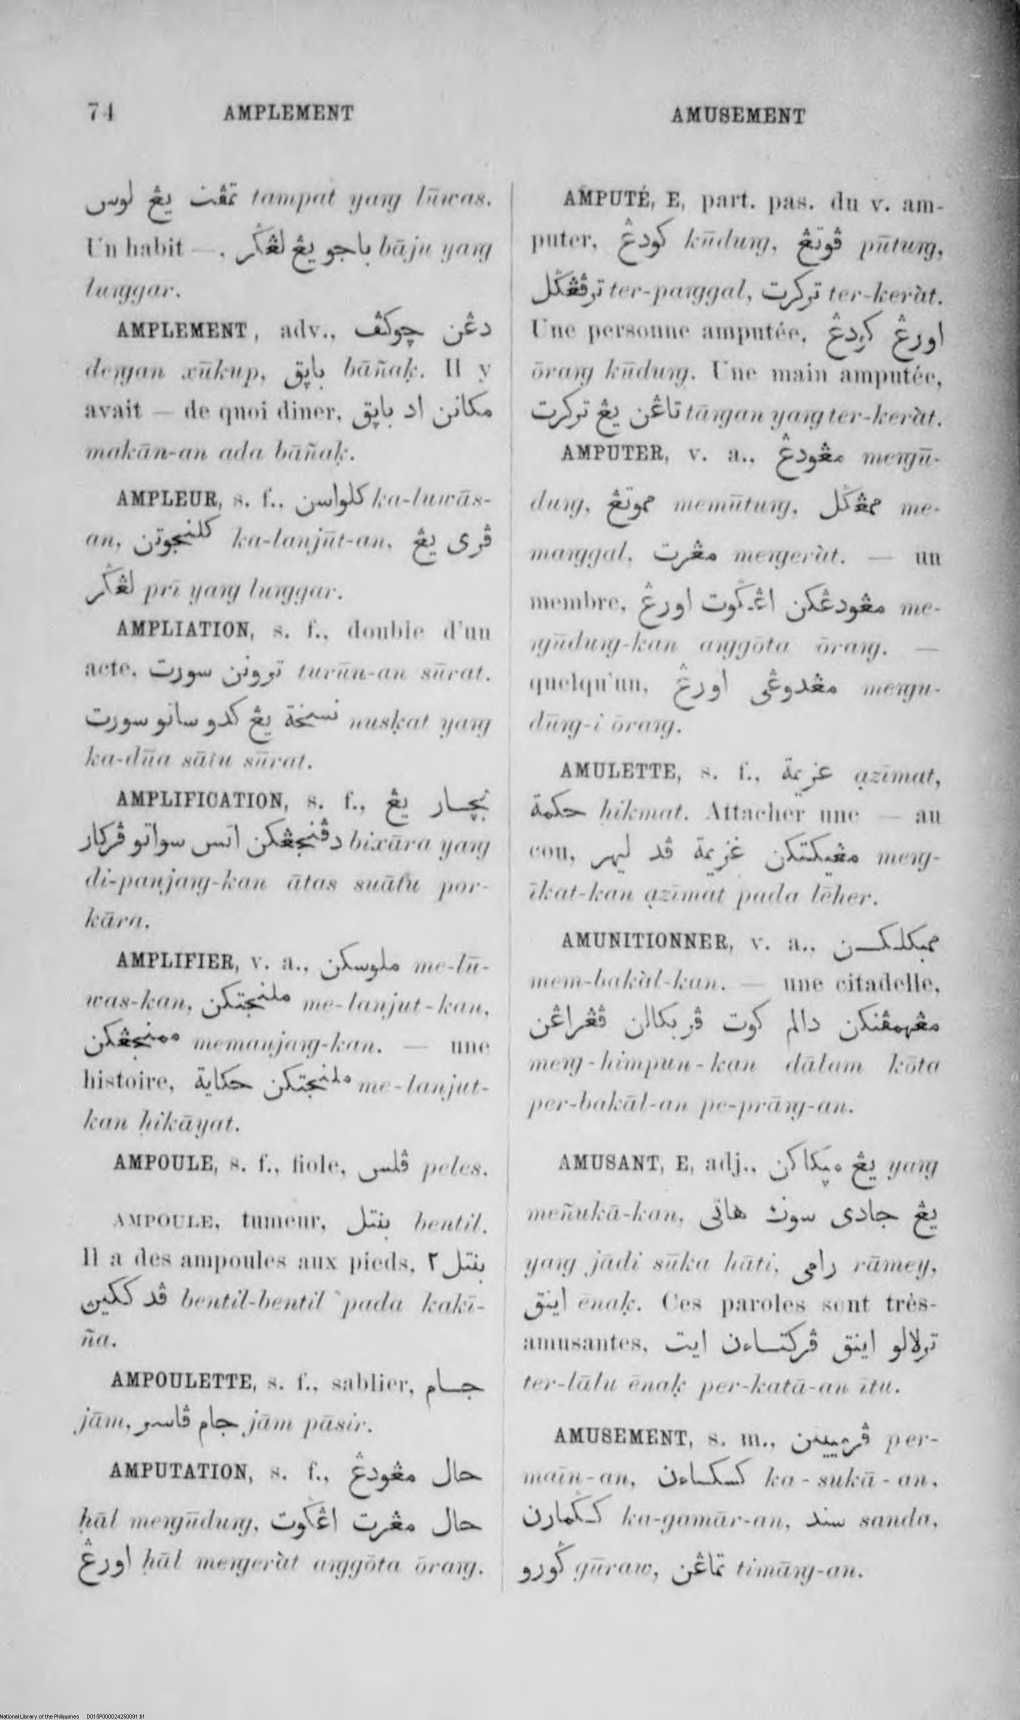 74 AMPLEMENT AMUSEMENT
تمڤت يڠ لوس tampat yaŋ lūwas.
Un habit —, باجو يڠ لڠݢر bāju yaŋ
luŋgar.
AMPLEMENT, adv., دڠن چوکڤ
deŋan xūkup, باڽق bāñaḳ. Il y
avait — de quoi diner, مکانن اد باڽق
makān-an ada bāñaḳ.
AMPLEUR, s. f., کلواسن ka-luwās-
an, کلنجوتن ka-lanjūt-an, ڤري يڠ
لڠݢر prī yaŋ luŋgar.
AMPLIATION, s. f., double d'un
acte, تورونن سورت turūn-an sūrat.
نسخة يڠ کدو ساتو سورت nuskat yaŋ
ka-dūa sātu sūrat.
AMPLIFICATION, s. f., بچار يڠ
دڤنجڠکن اتس سواتو ڤرکار bixāra yaŋ
di-panjaŋ-kan ātas suātu por-
kāra.
AMPLIFIER, v. a., ملوسکن me-lū-
was-kan, ملنجتکن me-lanjut-kan,
ممنجڠکن memanjaŋ-kan. — une
histoire, ملنجتکن حکاية me-lanjut-
kan ḥikāyat.
AMPOULE, s. f., fiole, ڤلس peles.
AMPOULE, tumeur, بنتل bentil.
Il a des ampoules aux pieds, بنتل٢
ڤد ککين bentil-bentil pada kakī-
ña.
AMPOULETTE, s. f., sablier, جام
jām, جام ڤاسر jām pāsir.
AMPUTATION, s. f., حال مڠودڠ
ḥāl meŋūduŋ, حال مڠرت اڠݢوت
اورڠ ḥāl meŋeràt aŋgōta ōraŋ.
AMPUTÉ, E, part. pas. du v. am-
puter, کودڠ kūduŋ, ڤوتڠ pūtuŋ,
ترڤڠݢل ter-paŋgal, ترکرت ter-keràt.
Une personne amputée, اورڠ کودڠ
ōraŋ kūduŋ. Une main amputée,
تاڠن يڠ ترکرت tāŋan yaŋ ter-keràt.
AMPUTER, v. a., مڠودڠ meŋū-
duŋ, مموتڠ memūtuŋ, ممڠݢل me-
maŋgal, مڠرت meŋeràt. — un
membre, مڠودڠکن اڠݢوت اورڠ me-
ŋūduŋ-kan aŋgōta ōraŋ. —
quelqu'un, مڠدوڠي اورڠ meŋu-
dūŋ-i ōraŋ.
AMULETTE, s. f., عزيمة ạzīmat,
حکمة ḥikmat. Attacher une — au
cou, مڠيکتکن عزيمة ڤد ليهر meŋ-
īkat-kan ạzīmat pada lēher.
AMUNITIONNER, v. a., ممبکلکن
mem-bakàl-kan. — une citadelle,
مڠهمڤنکن دالم کوت ڤربکالن ڤڤراڠن
meŋ-himpun-kan dālam kōta
per-bakāl-an pe-prāŋ-an.
AMUSANT, E, adj., يڠ مڽکاکن yaŋ
meñukā-kan, يڠ جادي سوک هاتي
yaŋ jādi sūka hāti, رامي rāmey,
اينق ēnaḳ. Ces paroles sont très-
amusantes, ترلالو اينق ڤرکتاءن ايت
ter-lālu ēnaḳ per-katā-an ītu.
AMUSEMENT, s. m., ڤرمينن per-
maīn-an, کسکاءن ka-sukā-an,
کݢمارن ka-gamār-an, سند sanda,
ݢورو gūraw, تماڠن timāŋ-an.
National Library of the Philippines